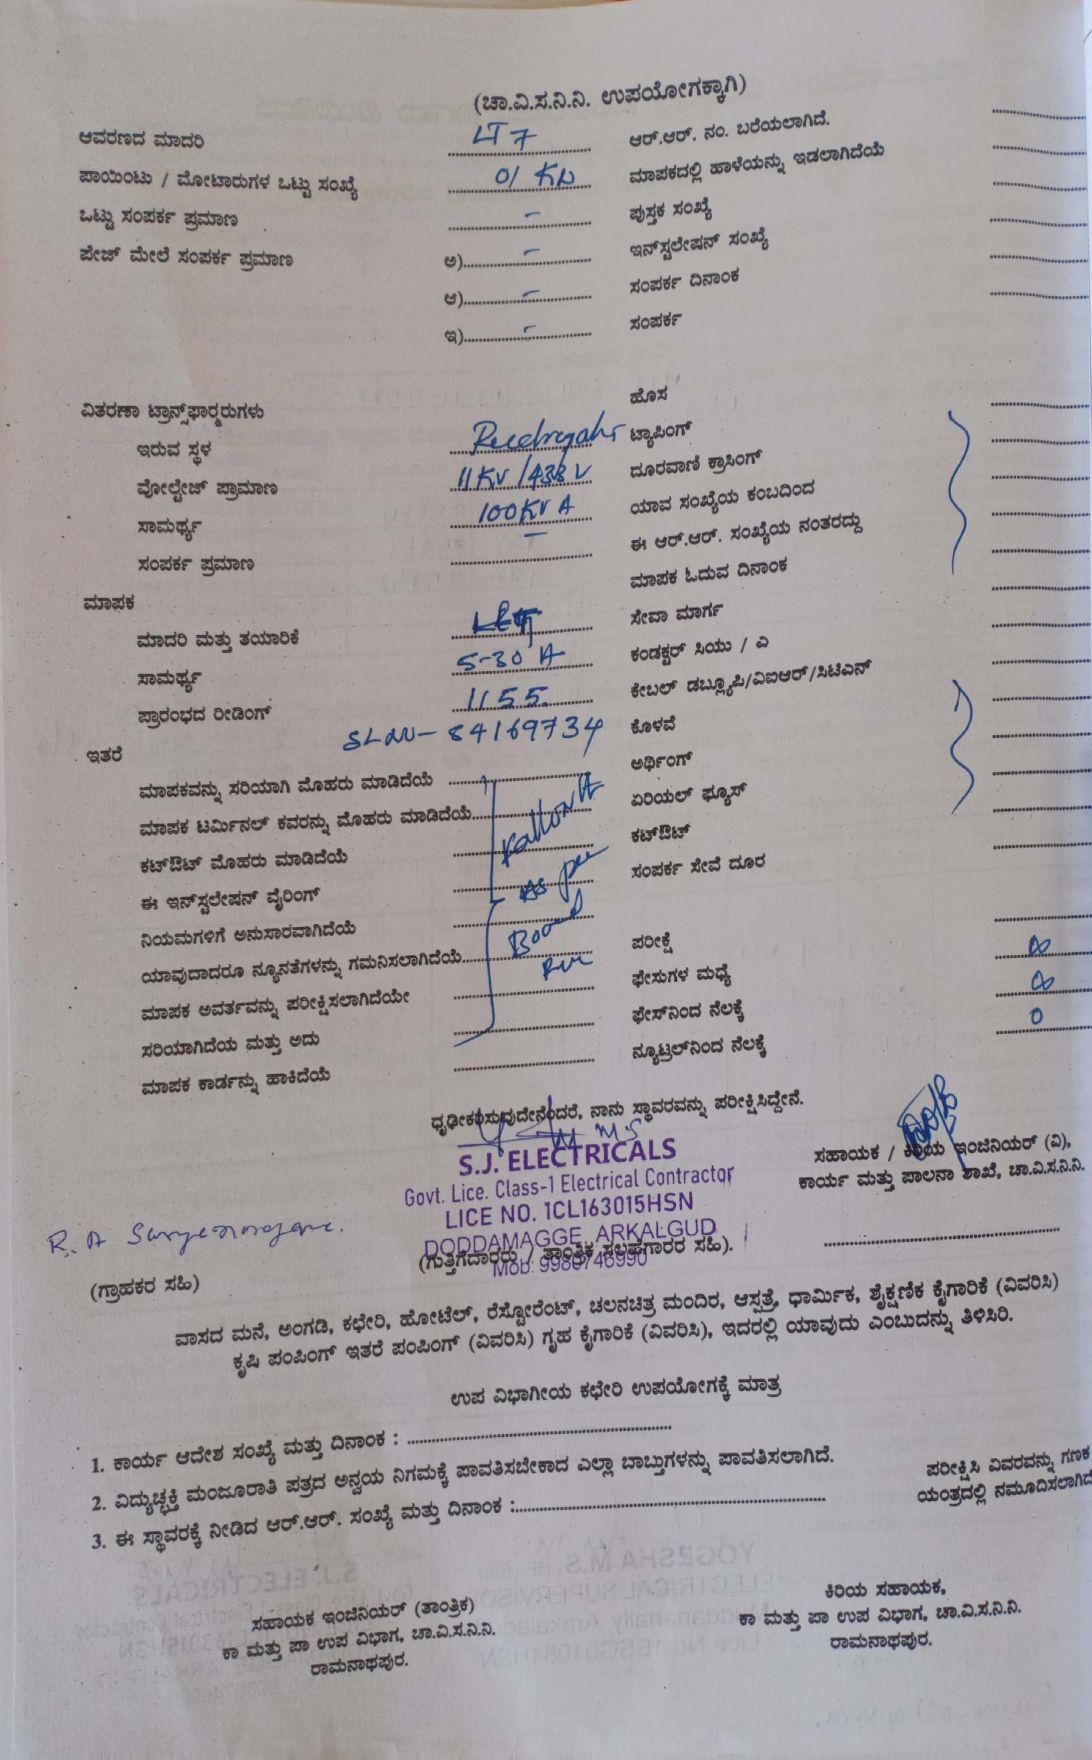 (ಚಾ.ವಿ.ಸ.ನಿ.ನಿ. ಉಪಯೋಗಕ್ಕಾಗಿ)
ಆವರಣದ ಮಾದರಿ LT 7 ಆರ್.ಆರ್. ನಂ. ಬರೆಯಲಾಗಿದೆ.
ಪಾಯಿಂಟು / ಮೋಟಾರುಗಳ ಒಟ್ಟು ಸಂಖ್ಯೆ 01 ಮಾಪಕದಲ್ಲಿ ಹಾಳೆಯನ್ನು ಇಡಲಾಗಿದೆಯೆ
ಒಟ್ಟು ಸಂಪರ್ಕ ಪ್ರಮಾಣ - ಪುಸ್ತಕ ಸಂಖ್ಯೆ
ಪೇಜ್ ಮೇಲೆ ಸಂಪರ್ಕ ಪ್ರಮಾಣ ಅ) - ಇನ್‌ಸ್ಟಲೇಷನ್ ಸಂಖ್ಯೆ
ಆ) - ಸಂಪರ್ಕ ದಿನಾಂಕ
ಇ) - ಸಂಪರ್ಕ
ವಿತರಣಾ ಟ್ರಾನ್ಸ್‌ಫಾರ್‍ಮರುಗಳು ಹೊಸ
ಇರುವ ಸ್ಥಳ ಟ್ಯಾಪಿಂಗ್
ವೋಲ್ಟೇಜ್ ಪ್ರಾಮಾಣ 11KV/433V ದೂರವಾಣಿ ಕ್ರಾಸಿಂಗ್
ಸಾಮರ್ಥ್ಯ 100KVA ಯಾವ ಸಂಖ್ಯೆಯ ಕಂಬದಿಂದ
ಸಂಪರ್ಕ ಪ್ರಮಾಣ - ಈ ಆರ್.ಆರ್. ಸಂಖ್ಯೆಯ ನಂತರದ್ದು
ಮಾಪಕ ಮಾಪಕ ಓದುವ ದಿನಾಂಕ
ಮಾದರಿ ಮತ್ತು ತಯಾರಿಕೆ ಸೇವಾ ಮಾರ್ಗ
ಸಾಮರ್ಥ್ಯ 5-30 A ಕಂಡಕ್ಟರ್ ಸಿಯು / ಎ
ಪ್ರಾರಂಭದ ರೀಡಿಂಗ್ 1155 ಕೇಬಲ್ ಡಬ್ಲ್ಯೂಪಿ/ವಿಐಆರ್/ಸಿಟಿಎನ್
ಇತರೆ SLNO- 84169734 ಕೊಳವೆ
ಮಾಪಕವನ್ನು ಸರಿಯಾಗಿ ಮೊಹರು ಮಾಡಿದೆಯೆ ಅರ್ಥಿಂಗ್
ಮಾಪಕ ಟರ್ಮಿನಲ್ ಕವರನ್ನು ಮೊಹರು ಮಾಡಿದೆಯೆ ಏರಿಯಲ್ ಫ್ಯೂಸ್
ಕಟ್‌ಔಟ್ ಮೊಹರು ಮಾಡಿದೆಯೆ ಕಟ್‌ಔಟ್
ಈ ಇನ್‌ಸ್ಟಲೇಷನ್ ವೈರಿಂಗ್ As per ಸಂಪರ್ಕ ಸೇವೆ ದೂರ
ನಿಯಮಗಳಿಗೆ ಅನುಸಾರವಾಗಿದೆಯೆ Board
ಯಾವುದಾದರೂ ನ್ಯೂನತೆಗಳನ್ನು ಗಮನಿಸಲಾಗಿದೆಯೆ ಪರೀಕ್ಷೆ
ಮಾಪಕ ಅವರ್ತವನ್ನು ಪರೀಕ್ಷಿಸಲಾಗಿದೆಯೇ ಫೇಸುಗಳ ಮಧ್ಯೆ ∞
ಸರಿಯಾಗಿದೆಯ ಮತ್ತು ಅದು ಫೇಸ್‌ನಿಂದ ನೆಲಕ್ಕೆ ∞
ಮಾಪಕ ಕಾರ್ಡನ್ನು ಹಾಕಿದೆಯೆ ನ್ಯೂಟ್ರಲ್‌ನಿಂದ ನೆಲಕ್ಕೆ 0
ಧೃಢೀಕರಿಸುವುದೇನೆಂದರೆ, ನಾನು ಸ್ಥಾವರವನ್ನು ಪರೀಕ್ಷಿಸಿದ್ದೇನೆ.
S.J. ELECTRICALS
Govt. Lice. Class-1 Electrical Contractor
LICE NO. 1CL163015HSN
DODDAMAGGE, ARKALGUD
Mob: 9980746990
ಸಹಾಯಕ / ಕಿರಿಯ ಇಂಜಿನಿಯರ್ (ವಿ),
ಕಾರ್ಯ ಮತ್ತು ಪಾಲನಾ ಶಾಖೆ, ಚಾ.ವಿ.ಸ.ನಿ.ನಿ.
(ಗ್ರಾಹಕರ ಸಹಿ) (ಗುತ್ತಿಗೆದಾರರು / ತಾಂತ್ರಿಕ ಸಲಹಗಾರರ ಸಹಿ).
ವಾಸದ ಮನೆ, ಅಂಗಡಿ, ಕಛೇರಿ, ಹೋಟೆಲ್, ರೆಸ್ಟೋರೆಂಟ್, ಚಲನಚಿತ್ರ ಮಂದಿರ, ಆಸ್ಪತ್ರೆ, ಧಾರ್ಮಿಕ, ಶೈಕ್ಷಣಿಕ ಕೈಗಾರಿಕೆ (ವಿವರಿಸಿ)
ಕೃಷಿ ಪಂಪಿಂಗ್ ಇತರೆ ಪಂಪಿಂಗ್ (ವಿವರಿಸಿ) ಗೃಹ ಕೈಗಾರಿಕೆ (ವಿವರಿಸಿ), ಇದರಲ್ಲಿ ಯಾವುದು ಎಂಬುದನ್ನು ತಿಳಿಸಿರಿ.
ಉಪ ವಿಭಾಗೀಯ ಕಛೇರಿ ಉಪಯೋಗಕ್ಕೆ ಮಾತ್ರ
1. ಕಾರ್ಯ ಆದೇಶ ಸಂಖ್ಯೆ ಮತ್ತು ದಿನಾಂಕ :
2. ವಿದ್ಯುಚ್ಛಕ್ತಿ ಮಂಜೂರಾತಿ ಪತ್ರದ ಅನ್ವಯ ನಿಗಮಕ್ಕೆ ಪಾವತಿಸಬೇಕಾದ ಎಲ್ಲಾ ಬಾಬ್ತುಗಳನ್ನು ಪಾವತಿಸಲಾಗಿದೆ.
3. ಈ ಸ್ಥಾವರಕ್ಕೆ ನೀಡಿದ ಆರ್.ಆರ್. ಸಂಖ್ಯೆ ಮತ್ತು ದಿನಾಂಕ :
ಪರೀಕ್ಷಿಸಿ ವಿವರವನ್ನು ಗಣಕ
ಯಂತ್ರದಲ್ಲಿ ನಮೂದಿಸಲಾಗಿದೆ
ಸಹಾಯಕ ಇಂಜಿನಿಯರ್ (ತಾಂತ್ರಿಕ)
ಕಾ ಮತ್ತು ಪಾ ಉಪ ವಿಭಾಗ, ಚಾ.ವಿ.ಸ.ನಿ.ನಿ.
ರಾಮನಾಥಪುರ.
ಕಿರಿಯ ಸಹಾಯಕ,
ಕಾ ಮತ್ತು ಪಾ ಉಪ ವಿಭಾಗ, ಚಾ.ವಿ.ಸ.ನಿ.ನಿ.
ರಾಮನಾಥಪುರ.